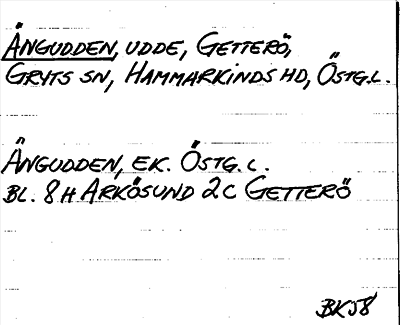 ÄNGUDDEN, UDDE, GETTERÖ,
GRYTS SN, HAMMARKINDS HD, ÖSTG.L.
ÄNGUDDEN, EK. ÖSTG.L.
BL. 8H ARKÖSUND 2C GETTERÖ
BKJ8